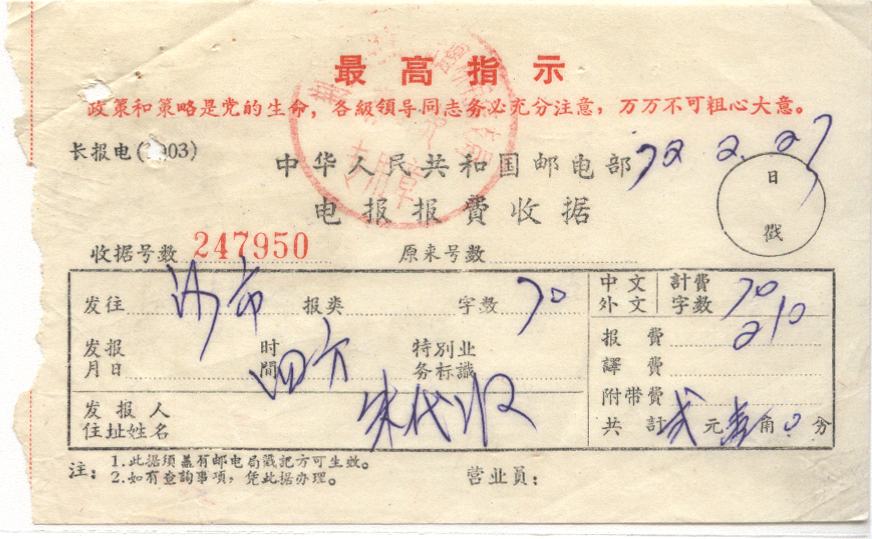 最高指示
政策和策略是党的生命，各級领导同志务必充分注意，万万不可粗心大意。
长报电(1003)
中华人民共和国邮电部 72 2. 27
电报报費收据
日戳
专用章
收据号数 247950 原来号数
发往 沙市 报类 字数 70
中文 外文 計費字数 70
报費 210
发报月日 时間 特别业务标識
譯費
附带費
发报人住址姓名
共計 贰元壹角0分
注：1.此据須盖有邮电局戳記方可生效。
2.如有查詢事項，凭此据办理。
营业员：